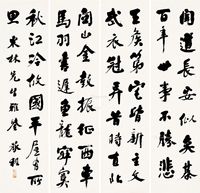 聞道長安似奕棊
百年世事不勝悲
王侯第宅皆新主文
武衣冠異昔時直北
關山金鼓振征西車
馬羽書遲魚龍寂寞
秋江冷故國平居有所
思 東林先生雅鑒